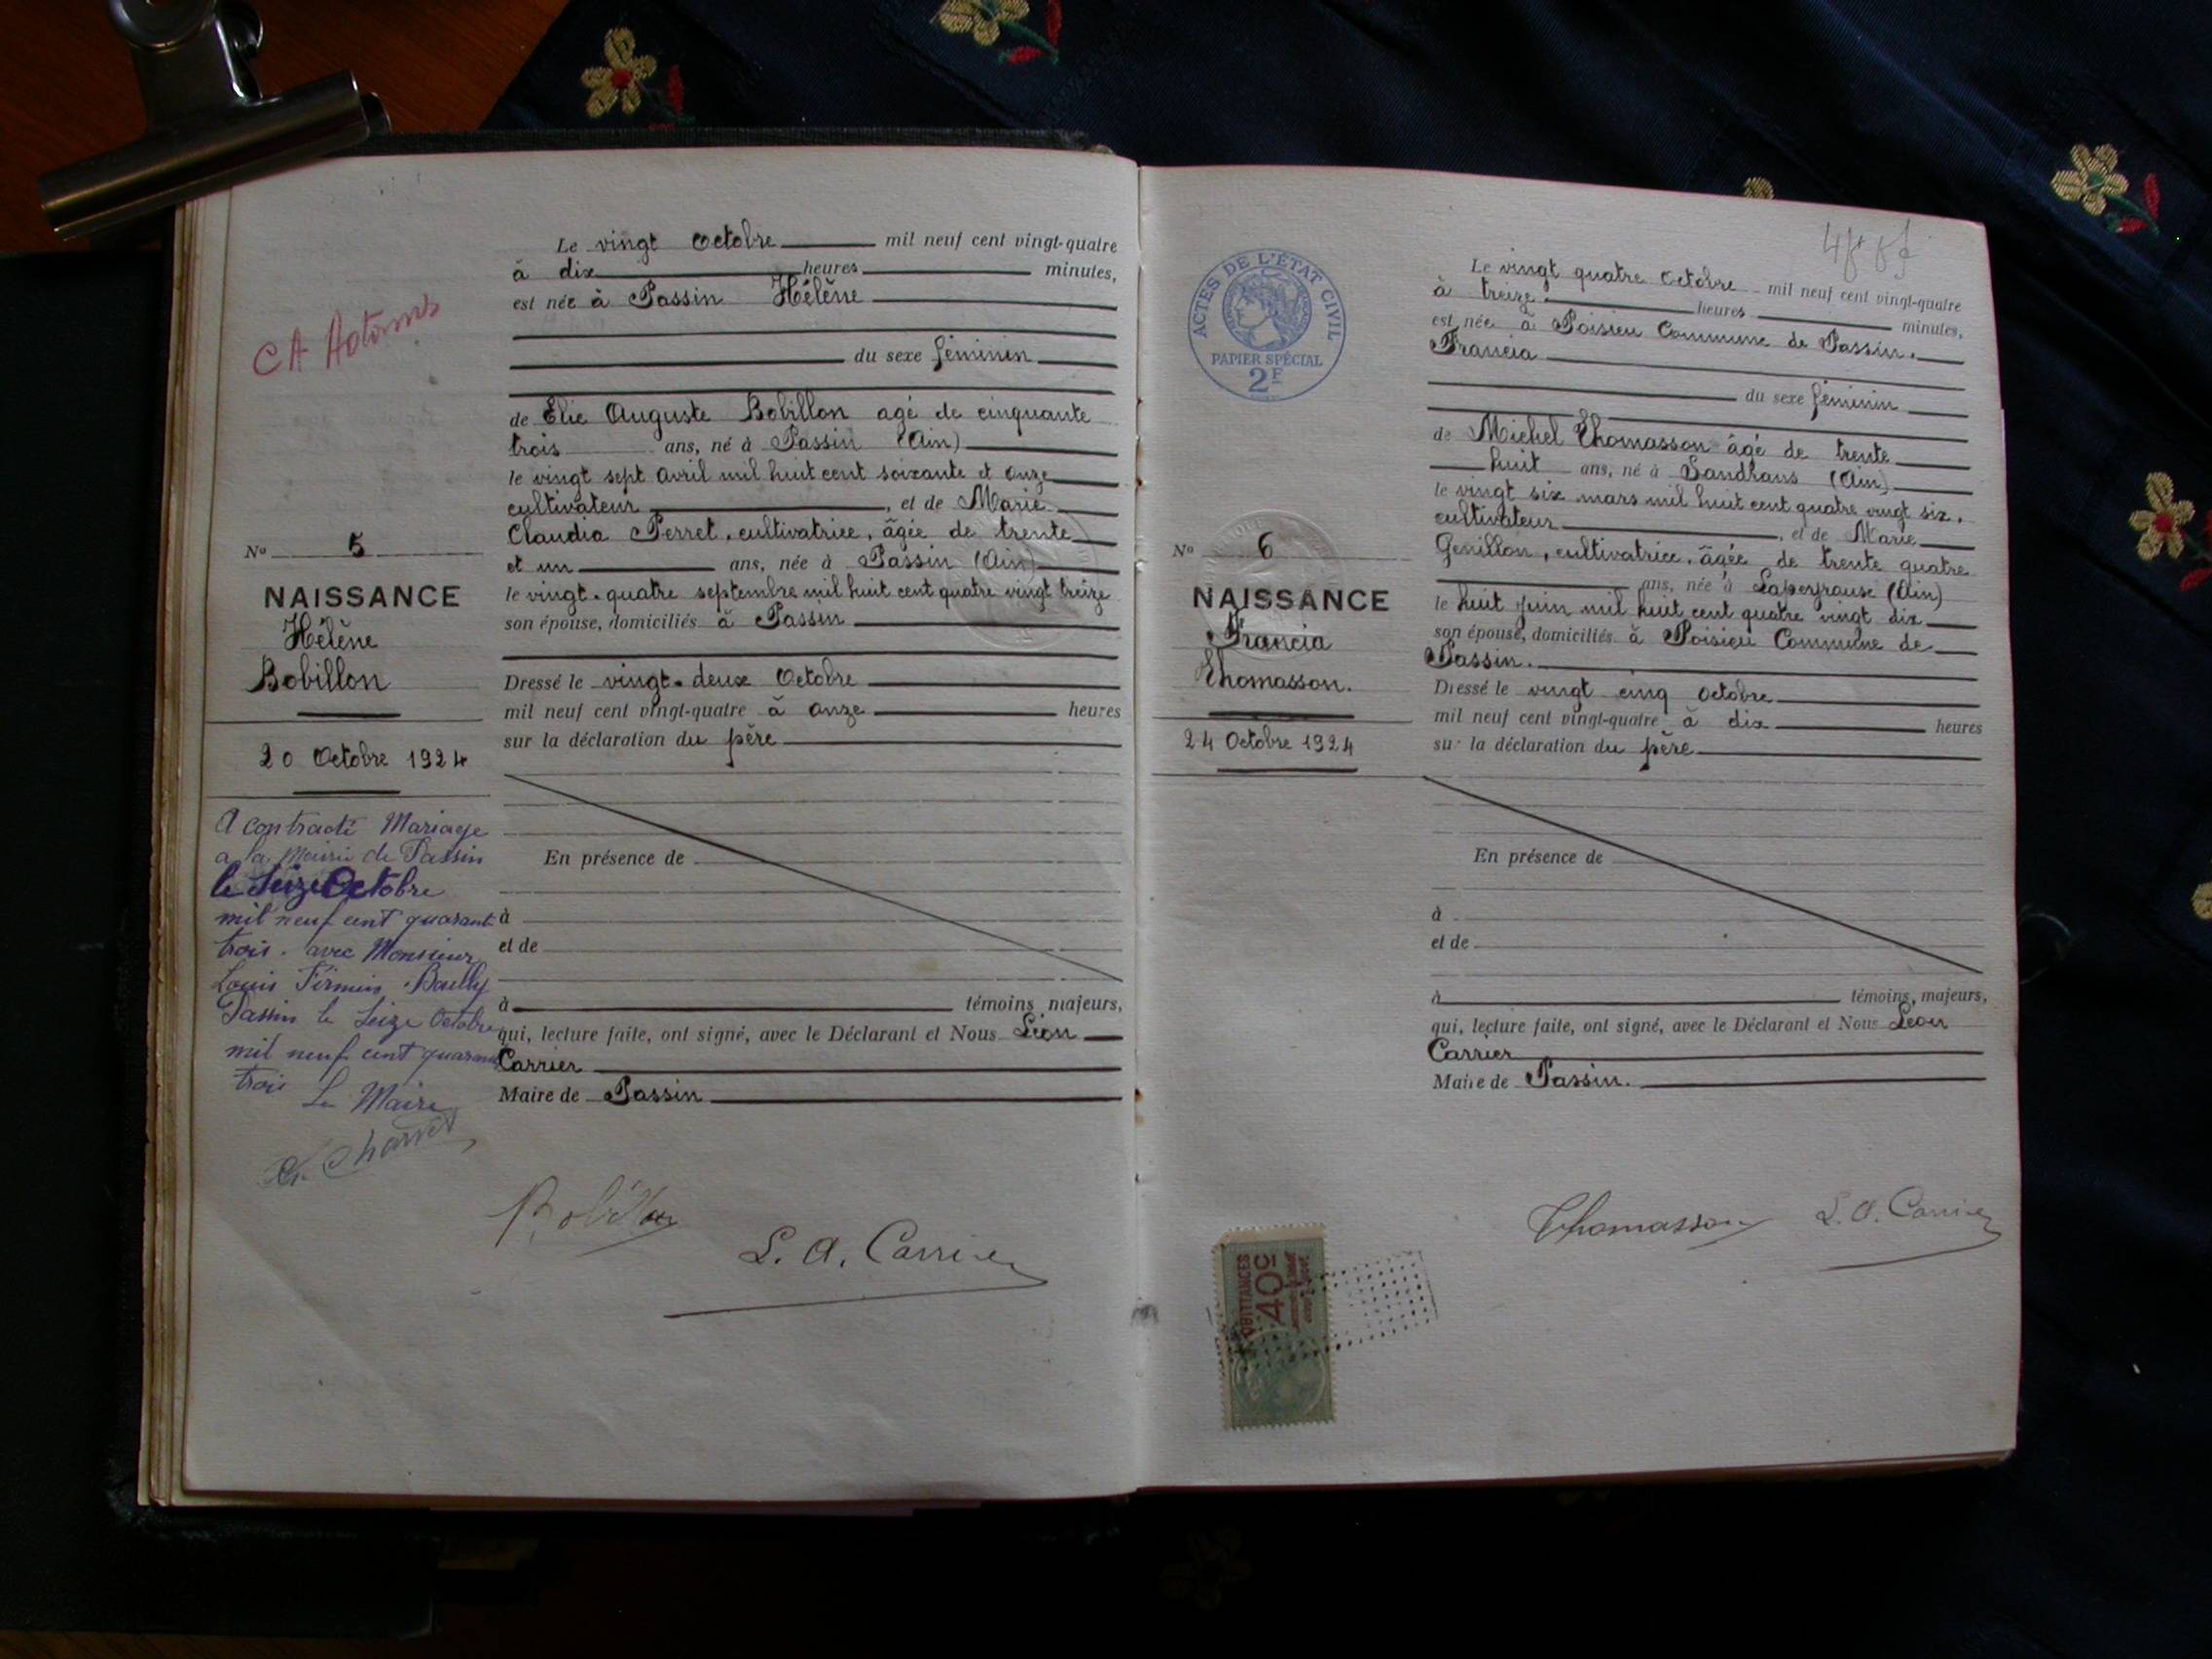 CA
N° 5
NAISSANCE
Hélène
Bobillon
20 Octobre 1924
A contracté Mariage
a la Mairie de Passin
le Seize Octobre
mil neuf cent quarant
trois. avec Monsieur
Louis Firmin Bailly
Passin le Seize Octobre
mil neuf cent quarant
trois
Le Maire
Le vingt Octobre mil neuf cent vingt-quatre
à dix heures minutes,
est née à Passin Hélène
du sexe féminin
de Elie Auguste Bobillon agé de cinquante
trois ans, né à Passin (Ain)
le vingt sept Avril mil huit cent soixante et onze
cultivateur, et de Marie
Claudia Perret, cultivatrice, âgée de trente
et un ans, née à Passin (Ain)
le vingt-quatre septembre mil huit cent quatre vingt treize
son épouse, domiciliés à Passin
Dressé le vingt-deux Octobre
mil neuf cent vingt-quatre à onze heures
sur la déclaration du père
En présence de
à
et de
à témoins majeurs,
qui, lecture faite, ont signé, avec le Déclarant et Nous Léon
Carrier
Maire de Passin
Bobillon
L. A. Carrier
ACTES DE L'ÉTAT CIVIL
PAPIER SPÉCIAL
2F
N° 6
NAISSANCE
Francia
Thomasson.
24 Octobre 1924
Le vingt quatre Octobre mil neuf cent vingt-quatre
à treize heures minutes,
est née à Poisieu Commune de Passin.
Francia
du sexe féminin
de Michel Thomasson âgé de trente
huit ans, né à Sandrans (Ain)
le vingt six mars mil huit cent quatre vingt six.
cultivateur, et de Marie
Genillon, cultivatrice, âgée de trente quatre
ans, née à Lapeyrouse (Ain)
le huit Juin mil huit cent quatre vingt dix
son épouse, domiciliés à Poisieu Commune de
Passin.
Dressé le vingt cinq Octobre
mil neuf cent vingt-quatre à dix heures
sur la déclaration du père
En présence de
à
et de
à témoins, majeurs,
qui, lecture faite, ont signé, avec le Déclarant et Nous Léon
Carrier
Maire de Passin.
Thomasson L. A. Carrier
QUITTANCES
40c